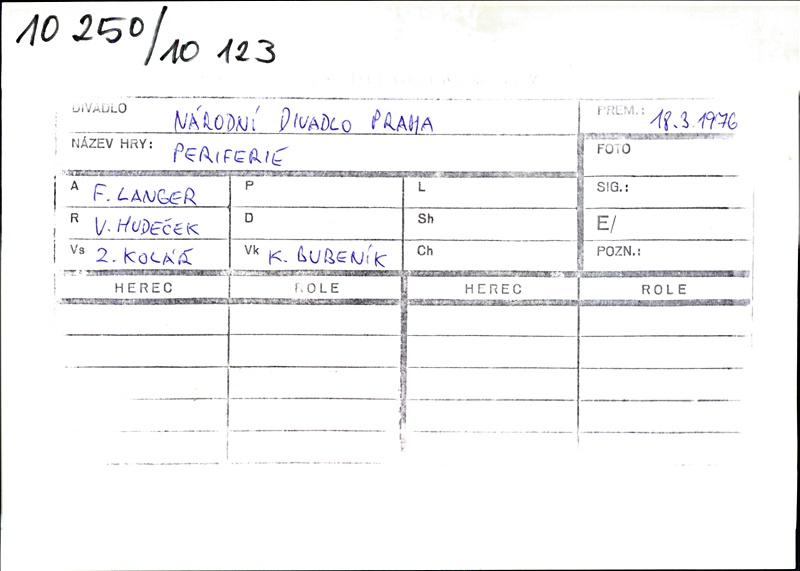 10 250/10 123
DIVADLO NÁRODNÍ DIVADLO PRAHA PREM.: 18.3.1976
NÁZEV HRY: PERIFERIE FOTO
A F. LANGER P L SIG.:
R V. HUDEČEK D Sh E/
Vs Z. KOLÁŘ Vk K. BUBENÍK Ch POZN.:
HEREC ROLE HEREC ROLE